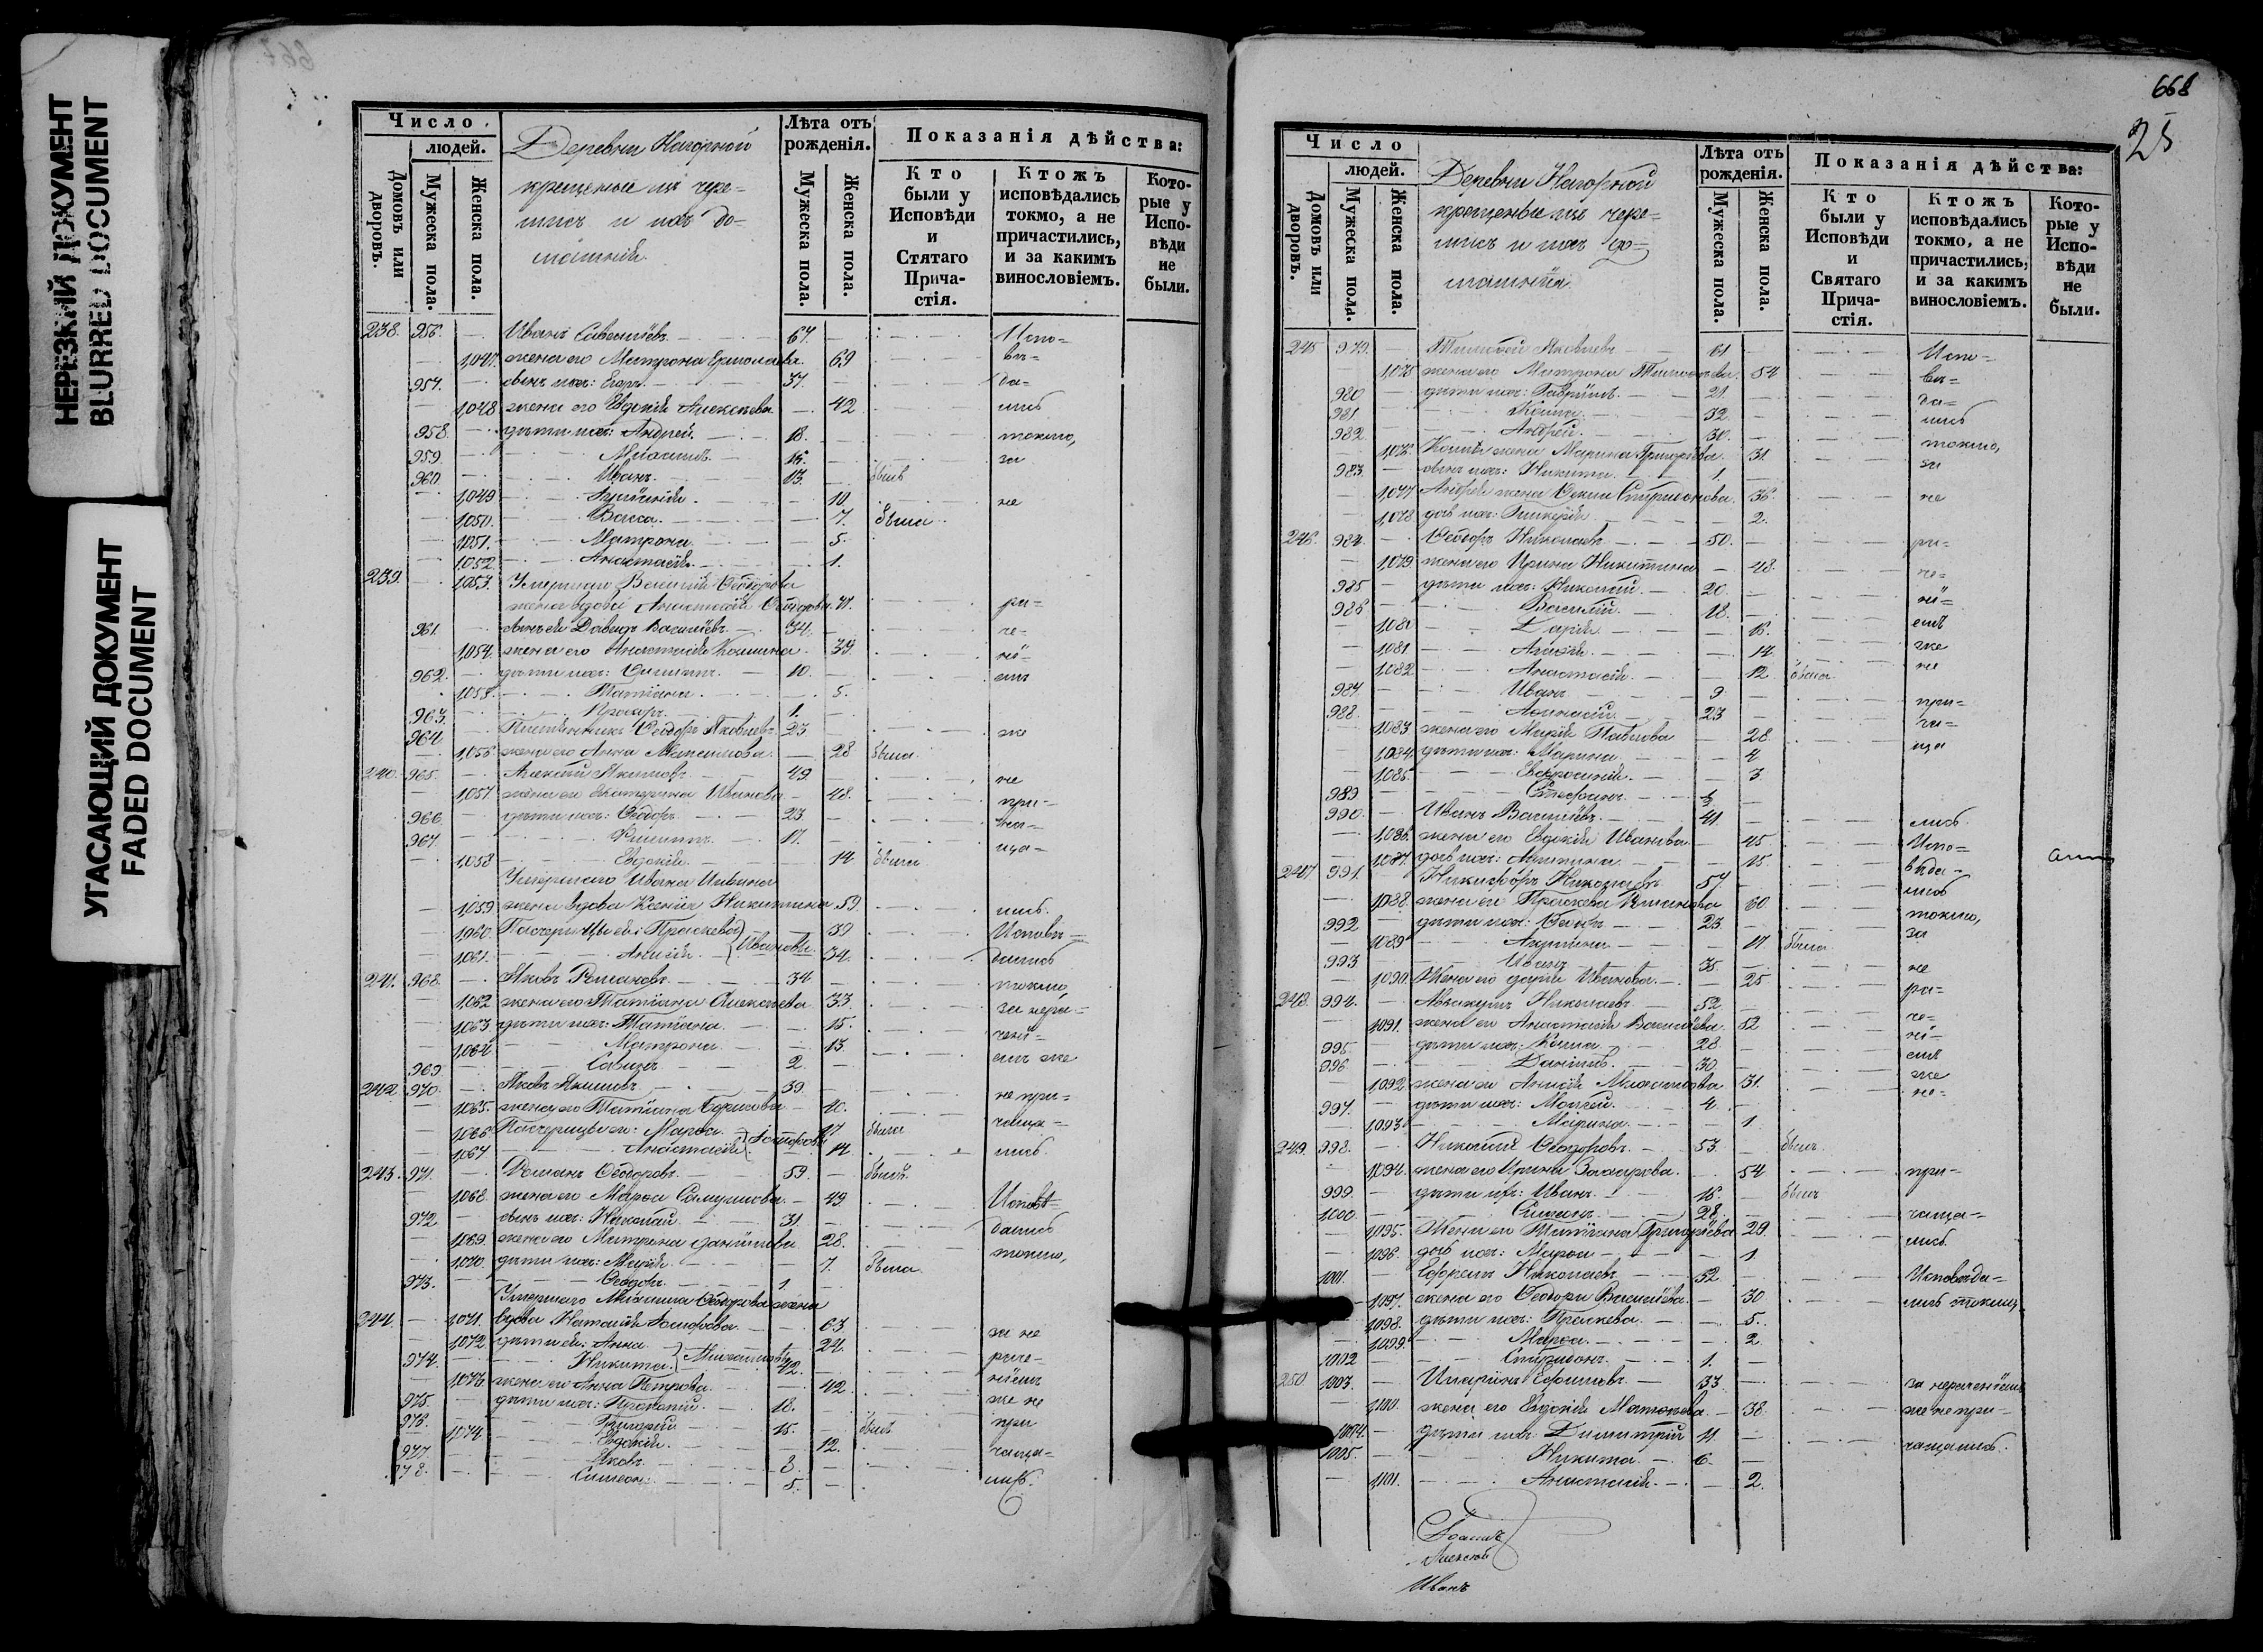 НЕРЕЗКИЙ ДОКУМЕНТ
BLURRED DOCUMENT
УГАСАЮЩИЙ ДОКУМЕНТ
FADED DOCUMENT
667
Число
людей.
Домовъ или дворовъ.
Мужеска пола.
Женска пола.
Деревни Нагорной
крещеные изъ чере-
мисъ и ихъ до-
машніе
Лѣта отъ рожденія.
Мужеска пола.
Женска пола.
Показанія дѣйства:
Кто были у Исповѣди и Стятаго Прича-стія.
Ктожъ исповѣдались токмо, а не причастились, и за какимъ винословіемъ.
Кото-рые у Испо-вѣди не были.
238. 956. Иванъ Савельевъ 67. Испо-
1,047. жена его Матрона Ермолаева 69 вѣ-
957. сынъ ихъ: Егоръ 37. да-
1,048. жена его Евдокія Алексѣева 42 лись
958. дѣти ихъ: Андрей 18. токмо,
959 15. за
960 Иванъ 13. былъ
1,049 10. не
1,050. Васса 7. была
1,051. Матрона 5.
1,052. Анастасія 1.
239. 1,053. Умершаго Василія Ѳедорова
жена вдова Анастасія 71. ра-
961. сынъ ея Давидъ Васильевъ 34. че-
1,054. жена его Анастасія 39. ні-
962. дѣти ихъ: 10. емъ
Татіана 5.
963. Прохоръ 1.
964 Ѳеодоръ Яковлевъ 23 же
1,056 жена его Анна Максимова 28 была
240. 965. Алексѣй Якимовъ 49 не
1,057 жена его Екатерина Иванова 48. при-
966. дѣти ихъ: Ѳеодоръ 23 ча-
967. Филиппъ 17. ща-
1,058 Евдокія 14 была
Умершаго Ивана
1,059 жена вдова Ксенія Никитина 59. лись.
1,060. Падчерицы ея: Праскева 39 Исповѣ-
1,061. Ивановы 34. дались
241. 968. Яковъ Романовъ 34 токмо,
1,062 жена его Татіана Алексѣева 33. за нера-
1,063 дѣти ихъ: Татіана 15. чені-
1,064 Матрона 13. емъ же
969 Савинъ 2
242. 970. Яковъ Якимовъ 39 не при-
1,065. жена его Татіана 40. чаща-
1,066 Падчерицы его: Марѳа 17 была
1,067 Анастасія 14. лись.
243. 971. Романъ Ѳеодоровъ 59. былъ
1,068. жена его Марѳа Самуилова 49. Исповѣ-
972 сынъ ихъ: Николай 31. дались
1,069. жена его Матрона Данилова 28. токмо,
1,070. дѣти ихъ: Марія 7. была
973. Ѳеодоръ 1
Умершаго Михаила Ѳеодорова жена
244. 1,071. вдова Наталія 63 за не
1,072 дѣти ея: Анна 24. раче-
974. Никита Михайловы 42. ніемъ
1,073 жена его Анна Петрова 42. же не
975. дѣти ихъ: Прокопій 18. при
976. Григорій 15. былъ
1,074 Евдокія 12. чаща-
977. Яковъ 8
978. Симеонъ 5. лись.
668
25
Число
людей.
Домовъ или дворовъ.
Мужеска пола.
Женска пола.
Деревни Нагорной
крещеные изъ чере-
мисъ и ихъ до-
машніе
Лѣта отъ рожденія.
Мужеска пола.
Женска пола.
Показанія дѣйства:
Кто были у Исповѣди и Святаго Прича-стія.
Ктожъ исповѣдались токмо, а не причастились, и за какимъ винословіемъ.
Кото-рые у Испо-вѣди не были.
245 979. Тимоѳей Яковлевъ 61 Испо-
1,075 жена его Матрона Тимоѳеева 54 вѣ-
980 дѣти ихъ: Гавріилъ 21. да-
981 Козма 32. лись
982 Андрей 30. токмо,
1,076. Козмы жена Марина Григорьева 31. за
983. сынъ ихъ: Никита 1.
1,077 Андрея жена Спиридонова 36. не
1,078. дочь ихъ: Гликерія 2.
246. 984. Ѳеодоръ Николаевъ 50. ра-
1,079 жена его Ирина Никитина 48. че-
985 дѣти ихъ: Николай 20. ні-
986 Василій 18. емъ
1,080 Дарія 16. же
1,081 14.
1,082 Анастасія 12 была не
987. Иванъ 9. при-
988. Аѳанасій 23 ча-
1,083 жена его Марія Павлова 28. ща
1,084. дѣти ихъ: Марина 4
1,085. Евфросинія 3.
989 Стефанъ ½
990. Иванъ Васильевъ 41. лись.
1,086. жена его Евдокія Иванова 45. Испо-
1,087. дочь ихъ: 15. вѣда-
247 991. Никифоръ Николаевъ 57. лись
1,088. жена его Праскева Романова 60. токмо,
992 дѣти ихъ: Ѳеодоръ 23. за
1,089 Акулина 17. была
993 Иванъ 35. не
1,090. Жена его Дарія Иванова 25 ра-
248. 994. Аввакумъ Николаевъ 52 че-
1,091. жена его Анастасія Васильева 52 ні-
995. дѣти ихъ: Козма 28. емъ
996. Даніилъ 30. же
1,092. жена его 31. не-
997. дѣти ихъ: Моисей 4
1,093 Марина 1.
249. 998. Николай Ѳеодоровъ 53. былъ
1,094. жена его Ирина Захарова 54 при-
999. дѣти ихъ: Иванъ 16. былъ
1000. Симеонъ 28. чаща-
1,095. Жена его Татіана Григорьева 29. лись.
1,096. дочь ихъ: Марѳа 1.
1001. Ефремъ Николаевъ 32 Исповѣда-
1,097. жена его Ѳеодора Васильева 30. лись токмо,
1,098. дѣти ихъ: Праскева 5.
1,099. Марѳа 2.
1002 Спиридонъ 1.
250 1003. Иларіонъ Ефимовъ 33 за нераченіемъ
1,100. жена его Евдокія 38. же не при-
1004. дѣти ихъ: Димитрій 11 чащались.
1005. Никита 6.
1,101. Анастасія 2.
Иванъ